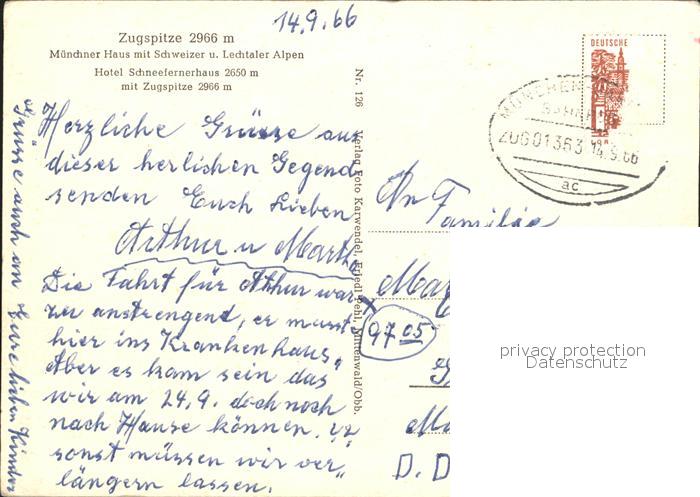 14.9.66
Zugspitze 2966 m
Münchner Haus mit Schweizer u. Lechtaler Alpen
Hotel Schneefernerhaus 2650 m
mit Zugspitze 2966 m
Herzliche Grüsse aus
dieser herlichen Gegend
senden Euch Lieben
Arthur u Martha
Die Fahrt für Athur war
zu anstrengend, er musst
hier ins Krankenhaus,
Aber es kam sein das
wir am 24.9. doch noch
nach Hause können.
sonst müssen wir ver„
längern lassen.
Grüsse auch an Eure lieben Kinder
Nr. 126 Verlag Foto Karwendel, Mittenwald/Obb.
DEUTSCHE
MÜNCHEN
ZUG01363 14.9.66
ac
An
Familie
Mar
9705
Ma
D. D
privacy protection
Datenschutz